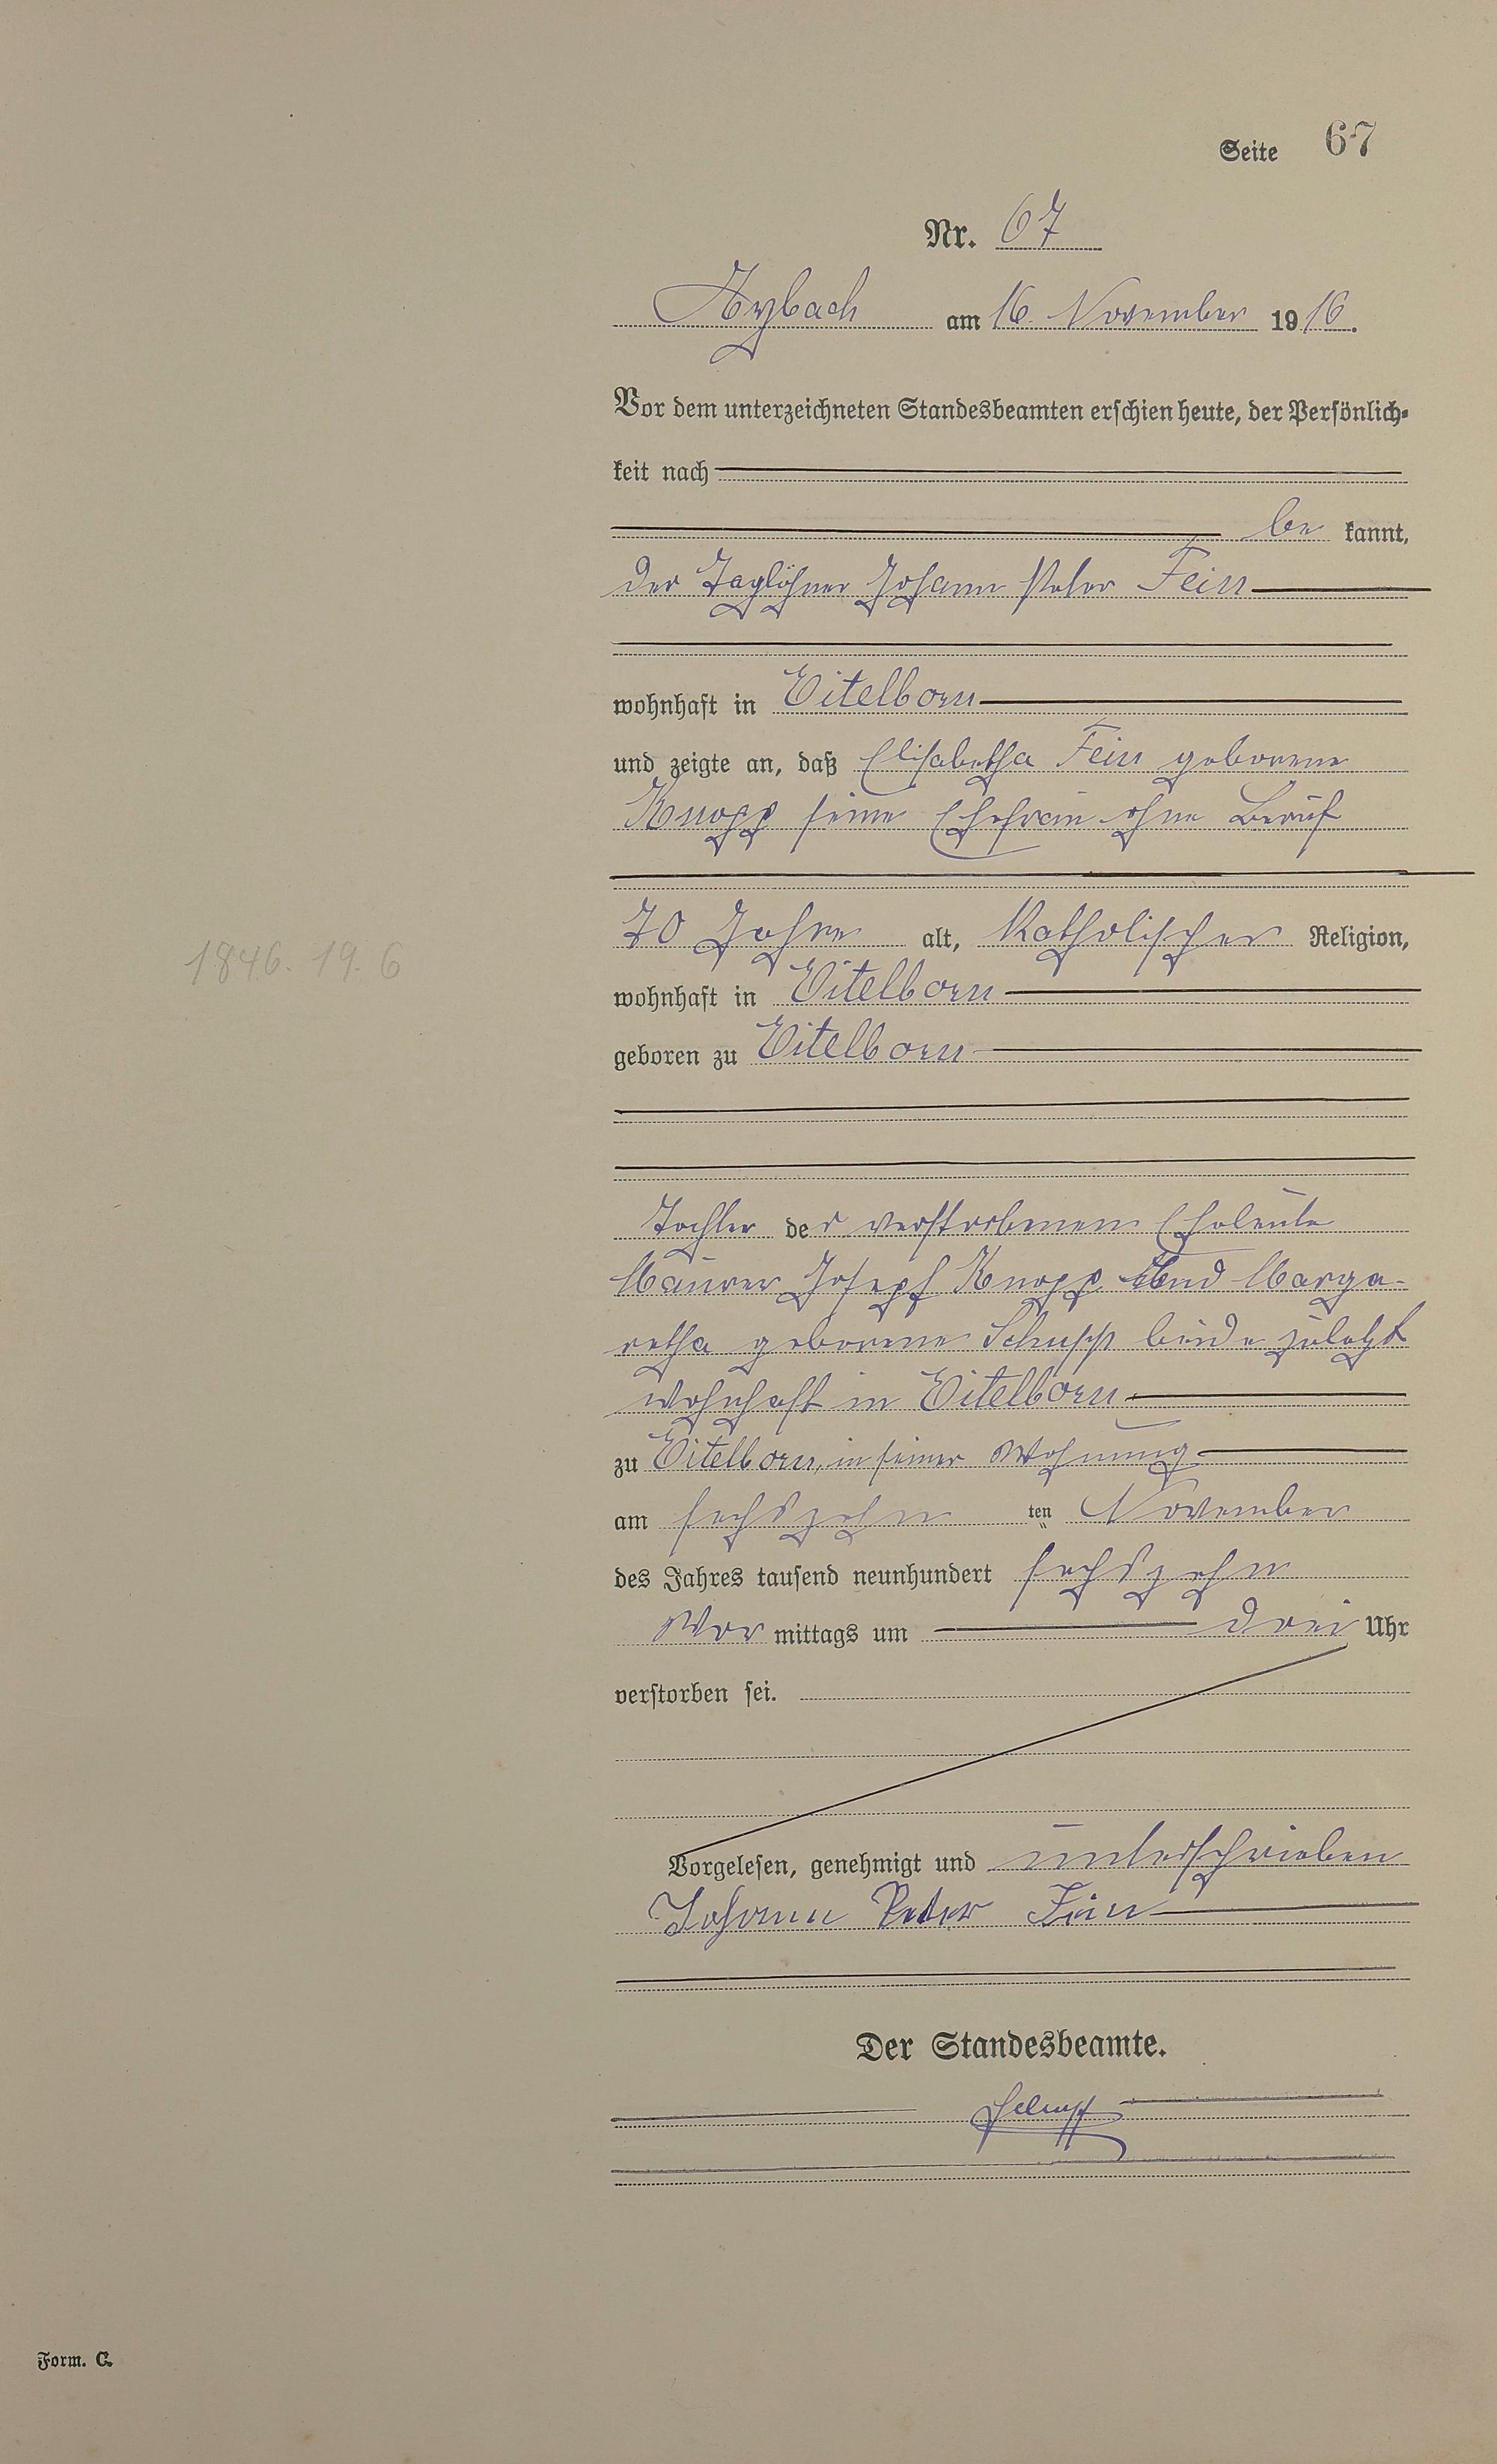 Seite 67
Nr. 67
Arzbach am 16. November 1916.
Vor dem unterzeichneten Standesbeamten erschien heute, der Persönlich-
keit nach
be kannt,
der Taglöhner Johann Peter Fein
wohnhaft in Eitelborn
und zeigte an, daß Elisabetha Fein geborene
Knopp seine Ehefrau ohne Beruf
70 Jahre alt, Katholischer Religion,
1846. 19. 6
wohnhaft in Eitelborn
geboren zu Eitelborn
Tochter der verstorbenen Eheleute
Maurer Joseph Knopp und Marga-
retha geborene Schupp beide zuletzt
wohnhaft in Eitelborn
zu Eitelborn, in seiner Wohnung
am sechszehn ten November
des Jahres tausend neunhundert sechszehn
Vor mittags um drei Uhr
verstorben sei.
Vorgelesen, genehmigt und unterschrieben
Johann Peter Fein
Der Standesbeamte.
Form. C.